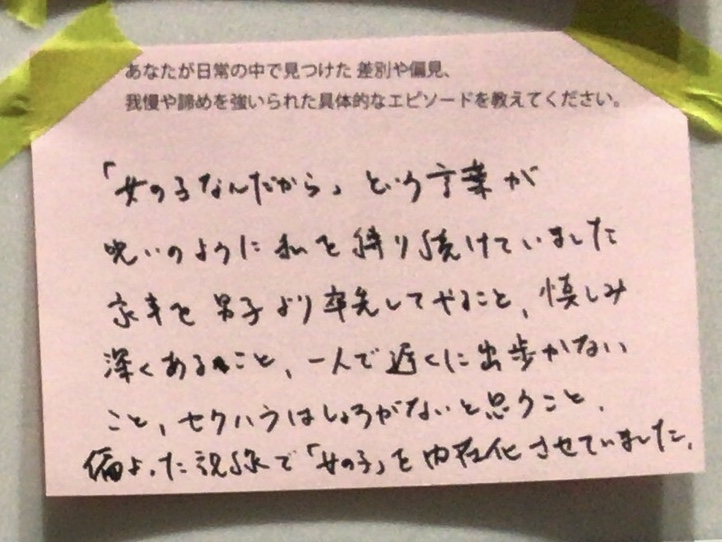 あなたが日常の中で見つけた 差別や偏見、
我慢や諦めを強いられた具体的なエピソードを教えてください。
「女の子なんだから」という言葉が
呪いのように私を縛り続けていました
家事を男子より率先してやること、慎しみ
深くあること、一人で遅くに出歩かない
こと、セクハラはしょうがないと思うこと、
偏よった視線で「女の子」を内在化させていました。